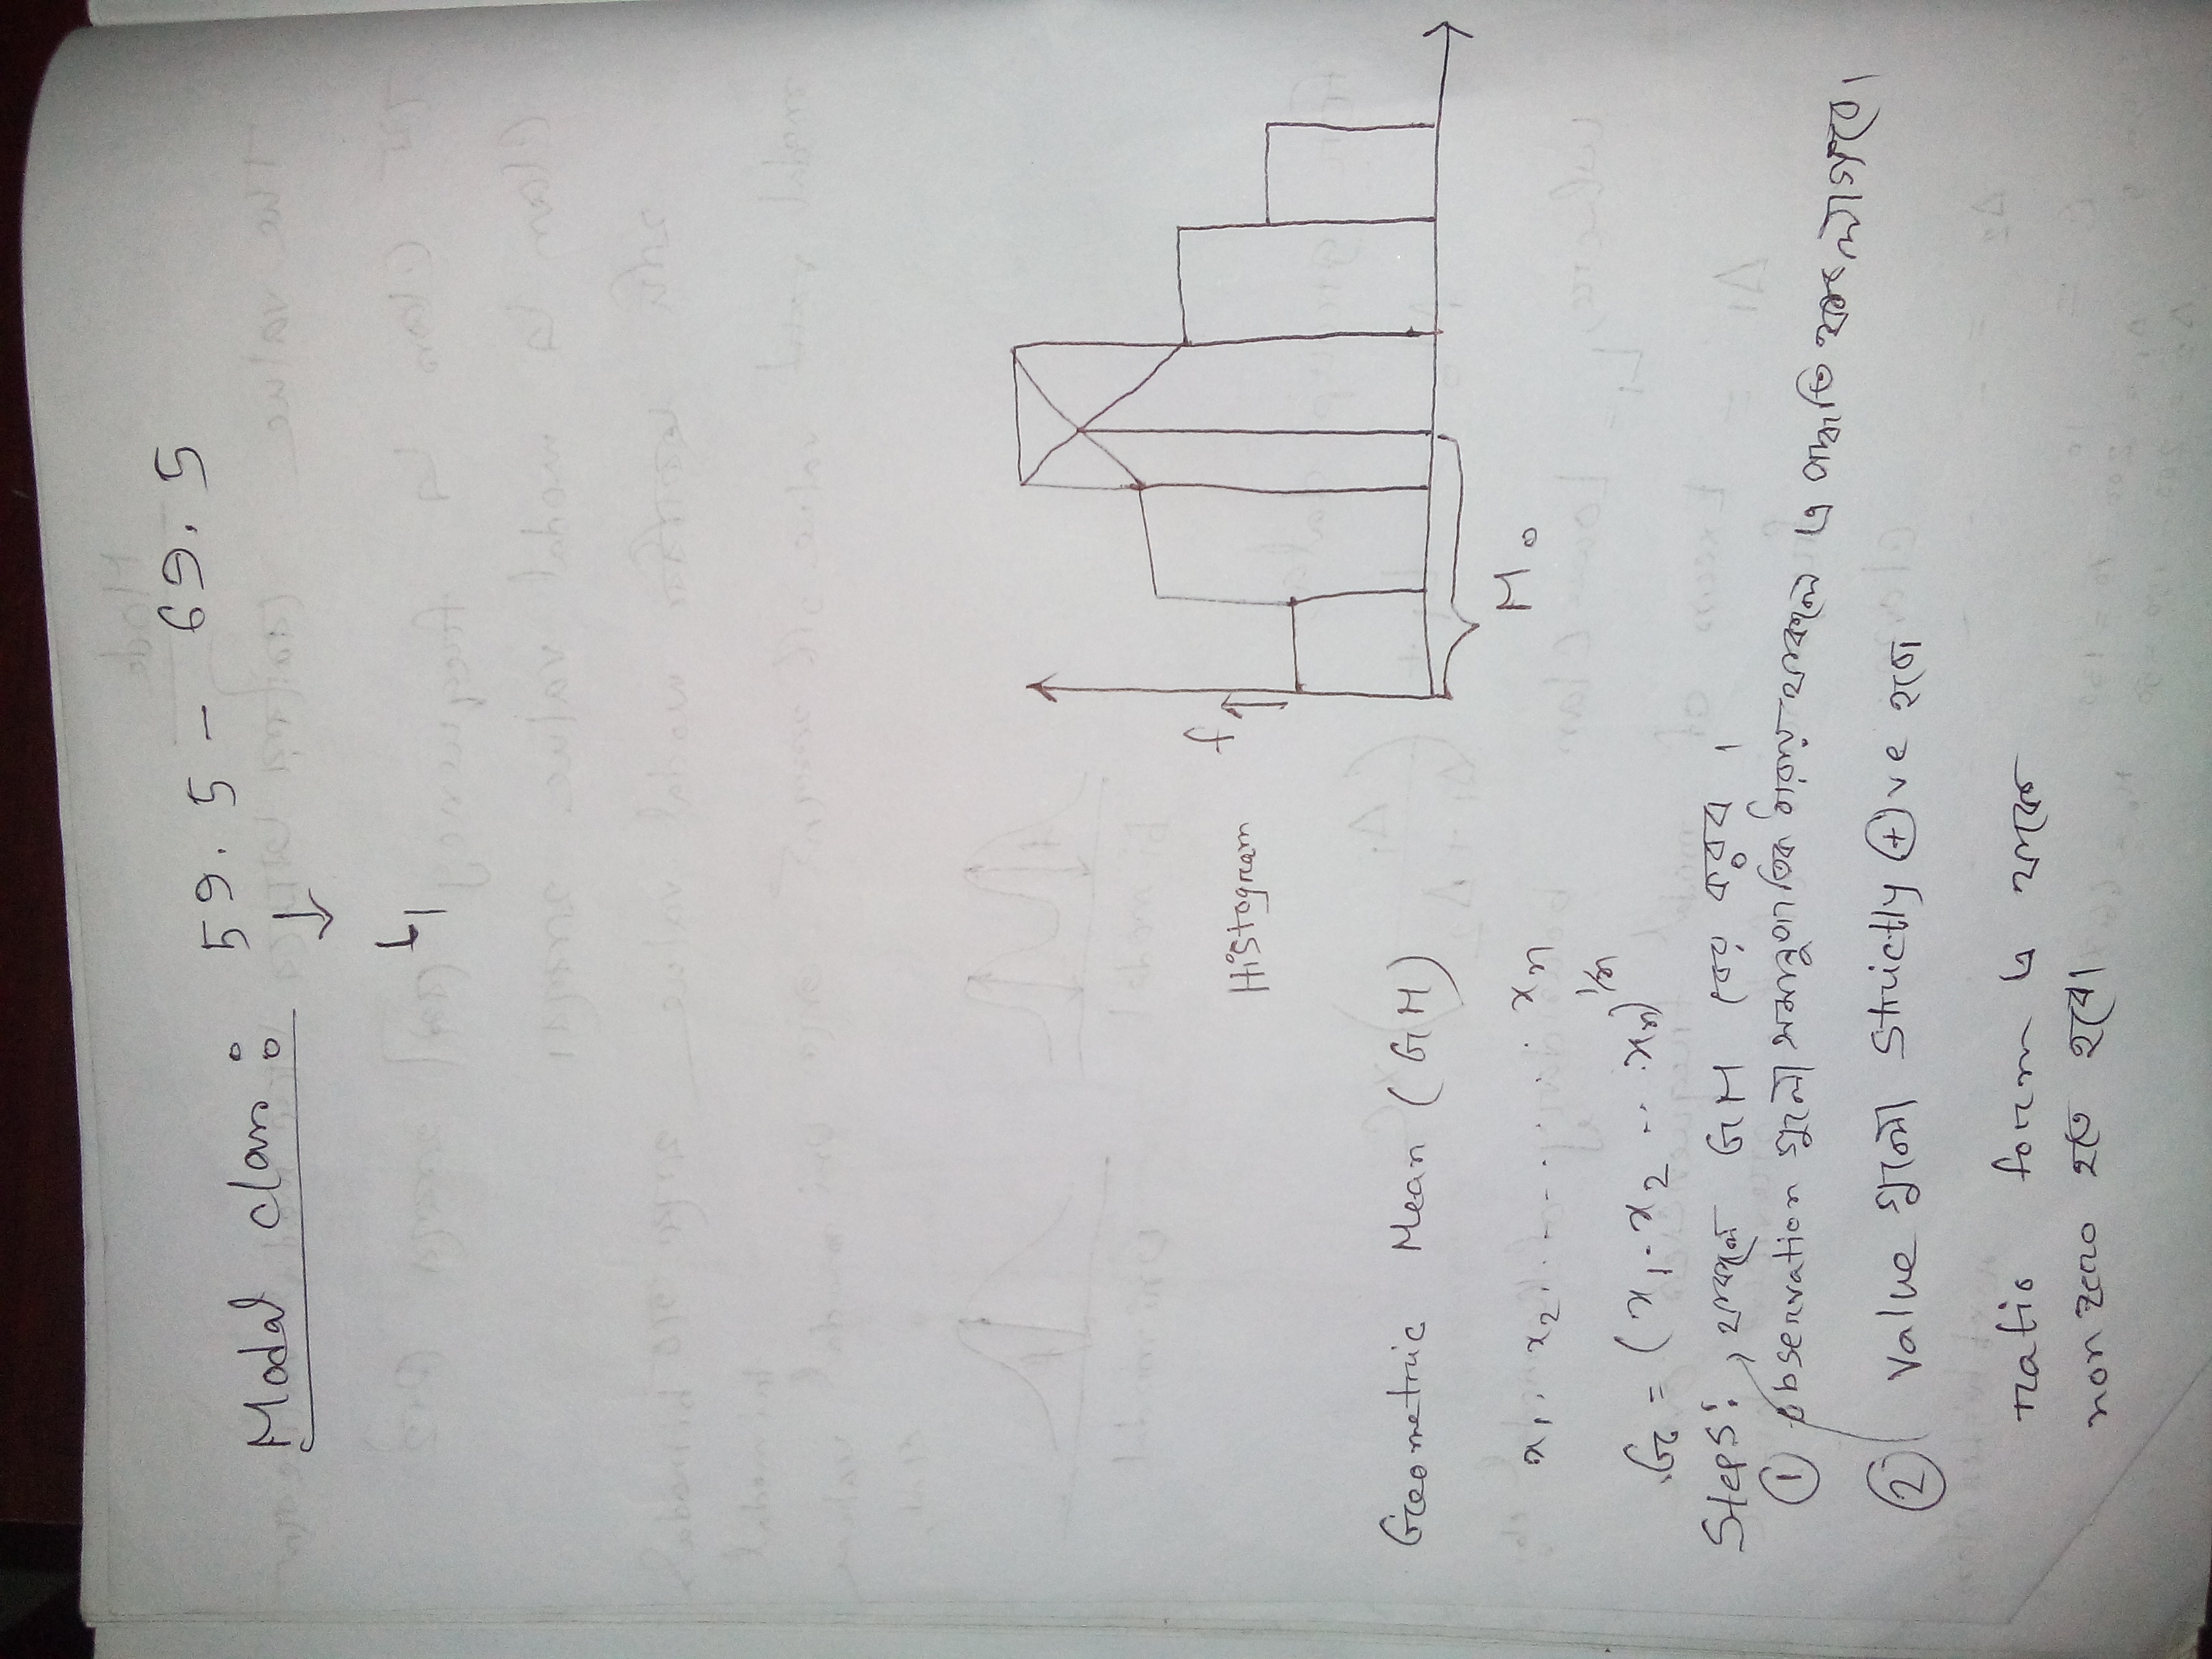 Modal class : 59.5 - 69.5
↓
L1
Histogram
f
Mo
Geometric Mean (GM)
x1, x2, ..... xn
G = (x1 . x2 ... xn)^1/n
Steps: যখন GM বের করব।
① observation গুলো সমগুণোত্তর ধারায় থাকলে
② value গুলো strictly ⊕ve হলে
ratio form এ থাকে
non zero হতে হবে।